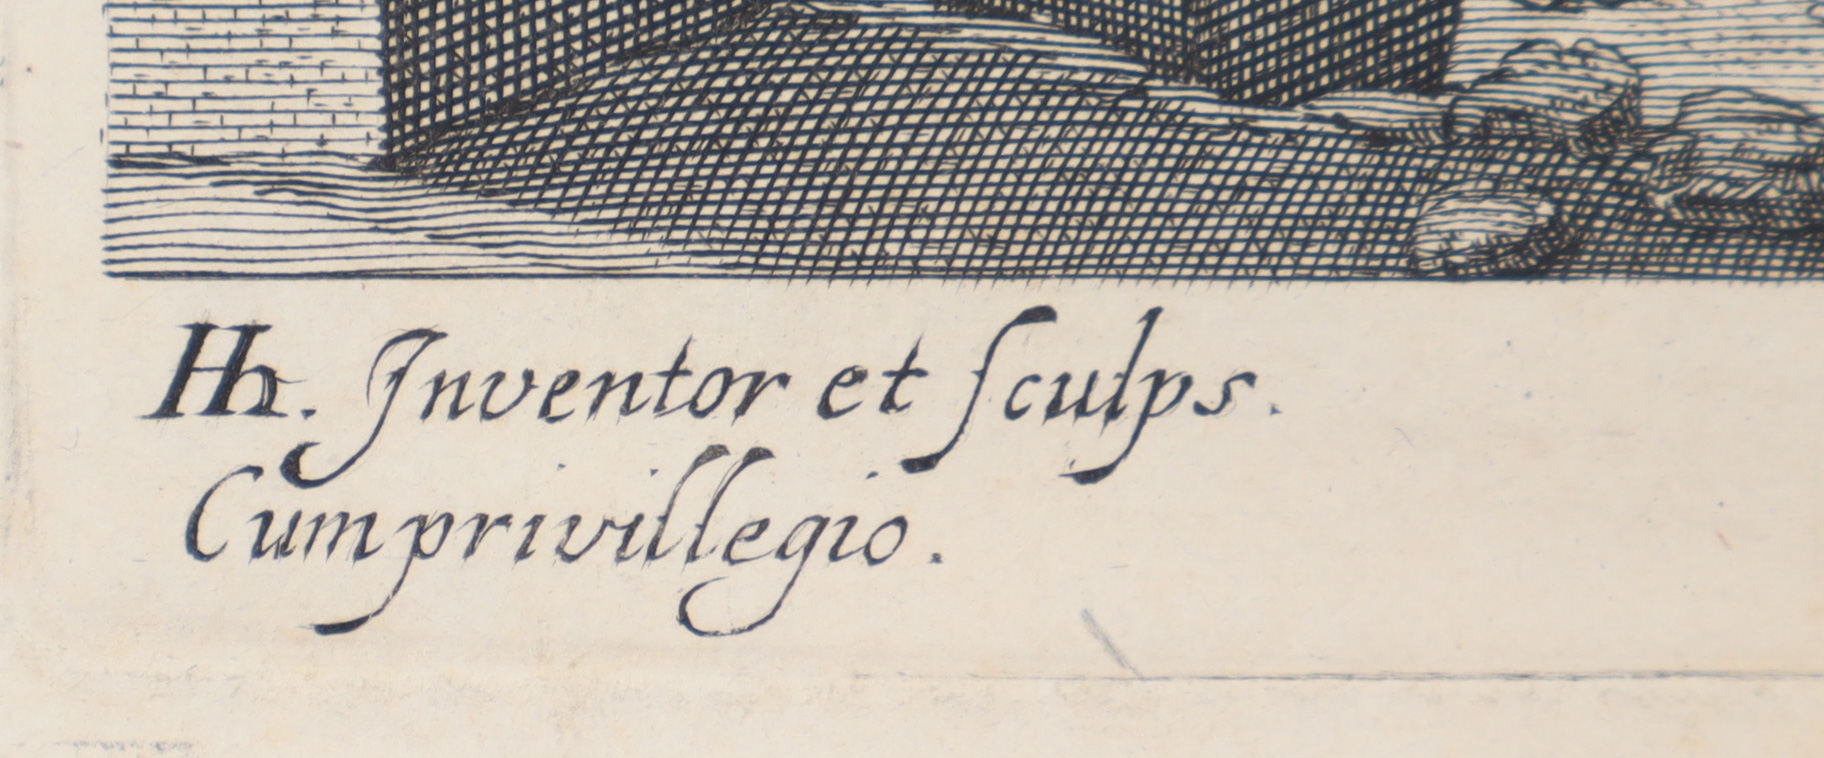 HR. Inventor et ſculps.
Cum privillegio.